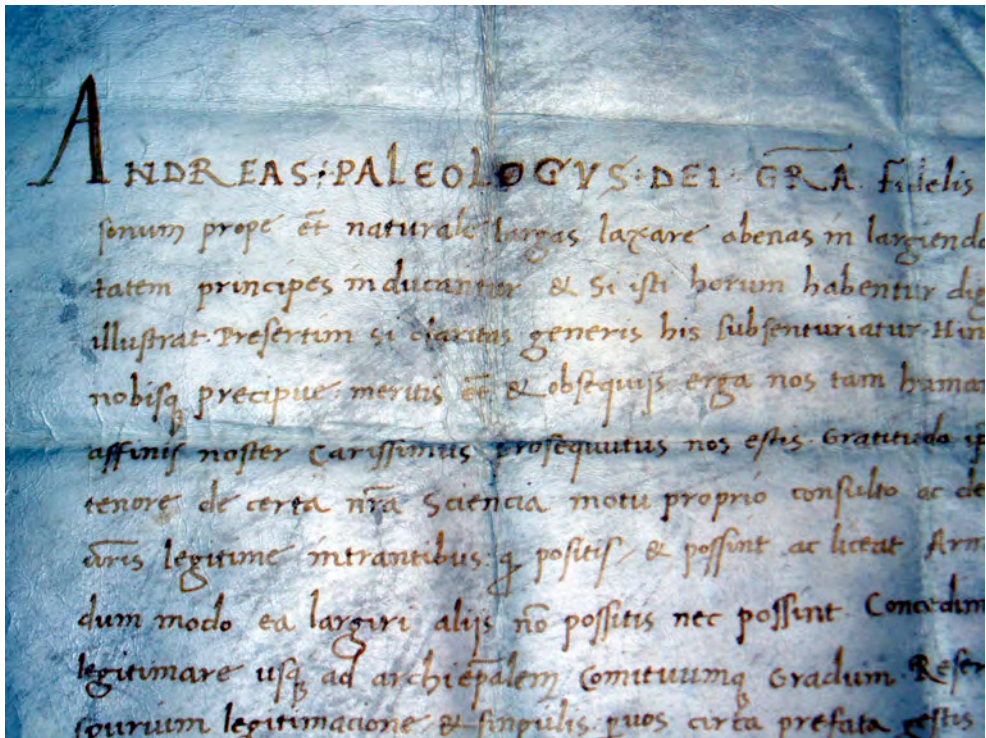 ANDREAS·PALEOLOGVS·DEI·GR̄A. fidelis
sonum prope ēt naturale largas laxare abenas in largiendo
tatem principes inducantur & Si isti horum habentur dig
illustrat. Presertim si claritas generis his subsenturiatur. Hin
nobisq; precipue meritis ēt & obsequijs erga nos tam humar
affinis noster Carissimus prosequutus nos estis. Gratitudo ip
tenore de certa nr̄a Sciencia motu proprio consulto ac de
legitime intrantibus. positis & possint ac liceat Arm
dum modo ea largiri alijs nō possitis nec possint. Concedim
legitimare usq; ad archiep̄alem Comituumq; Gradum. Reser
spurium legitimacione & singulis quos circa prefata gestis